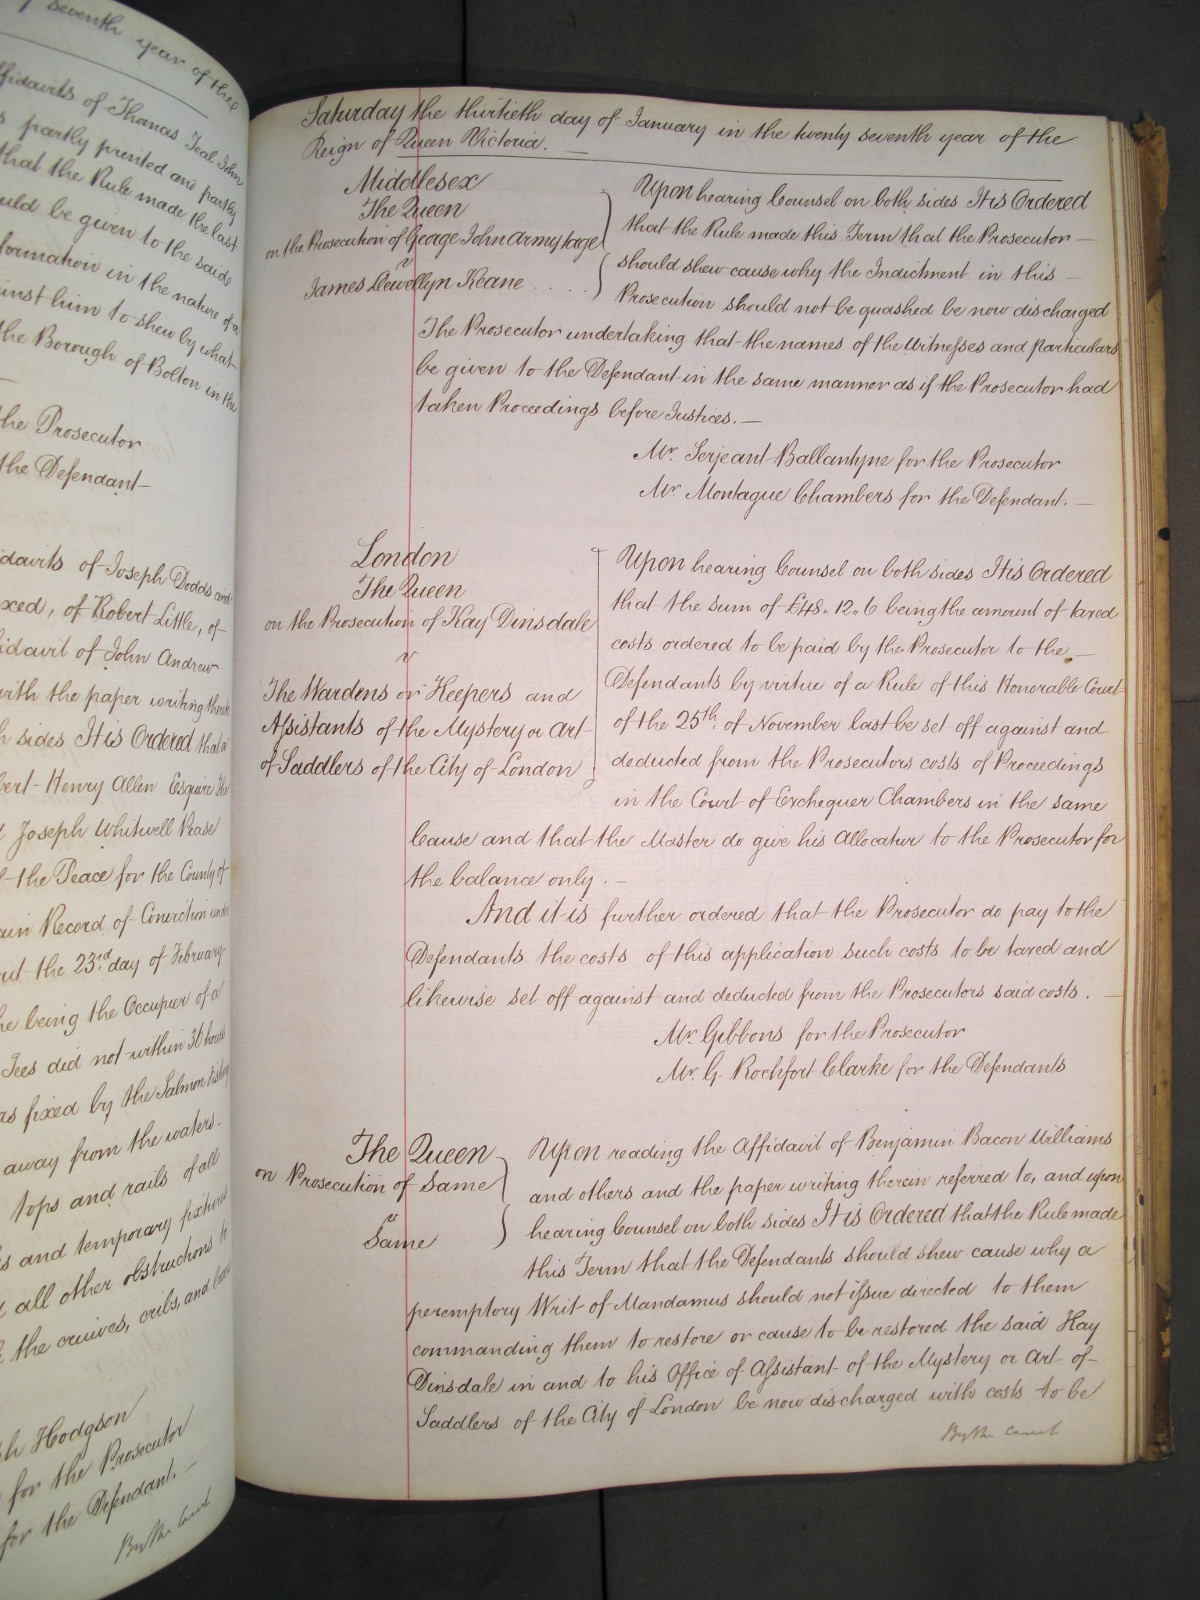 seventh year of thee
ffidavits of Thomas Teal John
s partly printed and partly
that the Rule made the last
uld be given to the said
formation in the nature of a
inst him to shew by what
the Borough of Bolton in the
the Prosecutor
the Defendant
davits of Joseph Dodds and
xed, of Robert Little, of
idavit of John Andrew
with the paper writing
h sides It is Ordered that a
bert Henry Allen Esquire
d Joseph Whitwell Pease
the Peace for the County of
ain Record of Conviction under
ut the 23rd day of February
he being the Occupier of a
Tees did not within 36 hours
as fixed by the Salmon fishery
away from the waters
tops and rails of all
s and temporary fixtures
d all other obstructions to
h the cruives, cribs, and
ph Hodgson
for the Prosecutor
for the Defendant.
By the Court
Saturday the thirtieth day of January in the twenty seventh year of the
Reign of Queen Victoria.
Middlesex
The Queen
on the Prosecution of George John Armytage
v
James Llewellyn Keane
Upon hearing Counsel on both sides It is Ordered
that the Rule made this Term that the Prosecutor
should shew cause why the Indictment in this
Prosecution should not be quashed be now discharged
The Prosecutor undertaking that the names of the Witnesses and particulars
be given to the Defendant in the same manner as if the Prosecutor had
taken Proceedings before Justices.
Mr. Serjeant Ballantyne for the Prosecutor
Mr Montague Chambers for the Defendant.
London
The Queen
on the Prosecution of Kay Dinsdale
v
The Wardens or Keepers and
Assistants of the Mystery or Art
of Saddlers of the City of London
Upon hearing Counsel on both sides It is Ordered
that the sum of £48.. 12.. 6 being the amount of taxed
costs ordered to be paid by the Prosecutor to the
Defendants by virtue of a Rule of this Honorable Court
of the 25th. of November last be set off against and
deducted from the Prosecutors costs of Proceedings
in the Court of Exchequer Chambers in the same
Cause and that the Master do give his Allocatur to the Prosecutor for
the balance only.
And it is further ordered that the Prosecutor do pay to the
Defendants the costs of this application such costs to be taxed and
likewise set off against and deducted from the Prosecutors said costs.
Mr. Gibbons for the Prosecutor
Mr. G. Rochfort Clarke for the Defendants
The Queen
on Prosecution of Same
v
Same
Upon reading the Affidavit of Benjamin Bacon Williams
and others and the paper writing therein referred to, and upon
hearing Counsel on both sides It is Ordered that the Rule made
this Term that the Defendants should shew cause why a
peremptory Writ of Mandamus should not issue directed to them
commanding them to restore or cause to be restored the said Hay
Dinsdale in and to his Office of Assistant of the Mystery or Art of
Saddlers of the City of London be now discharged with costs to be
By the Court